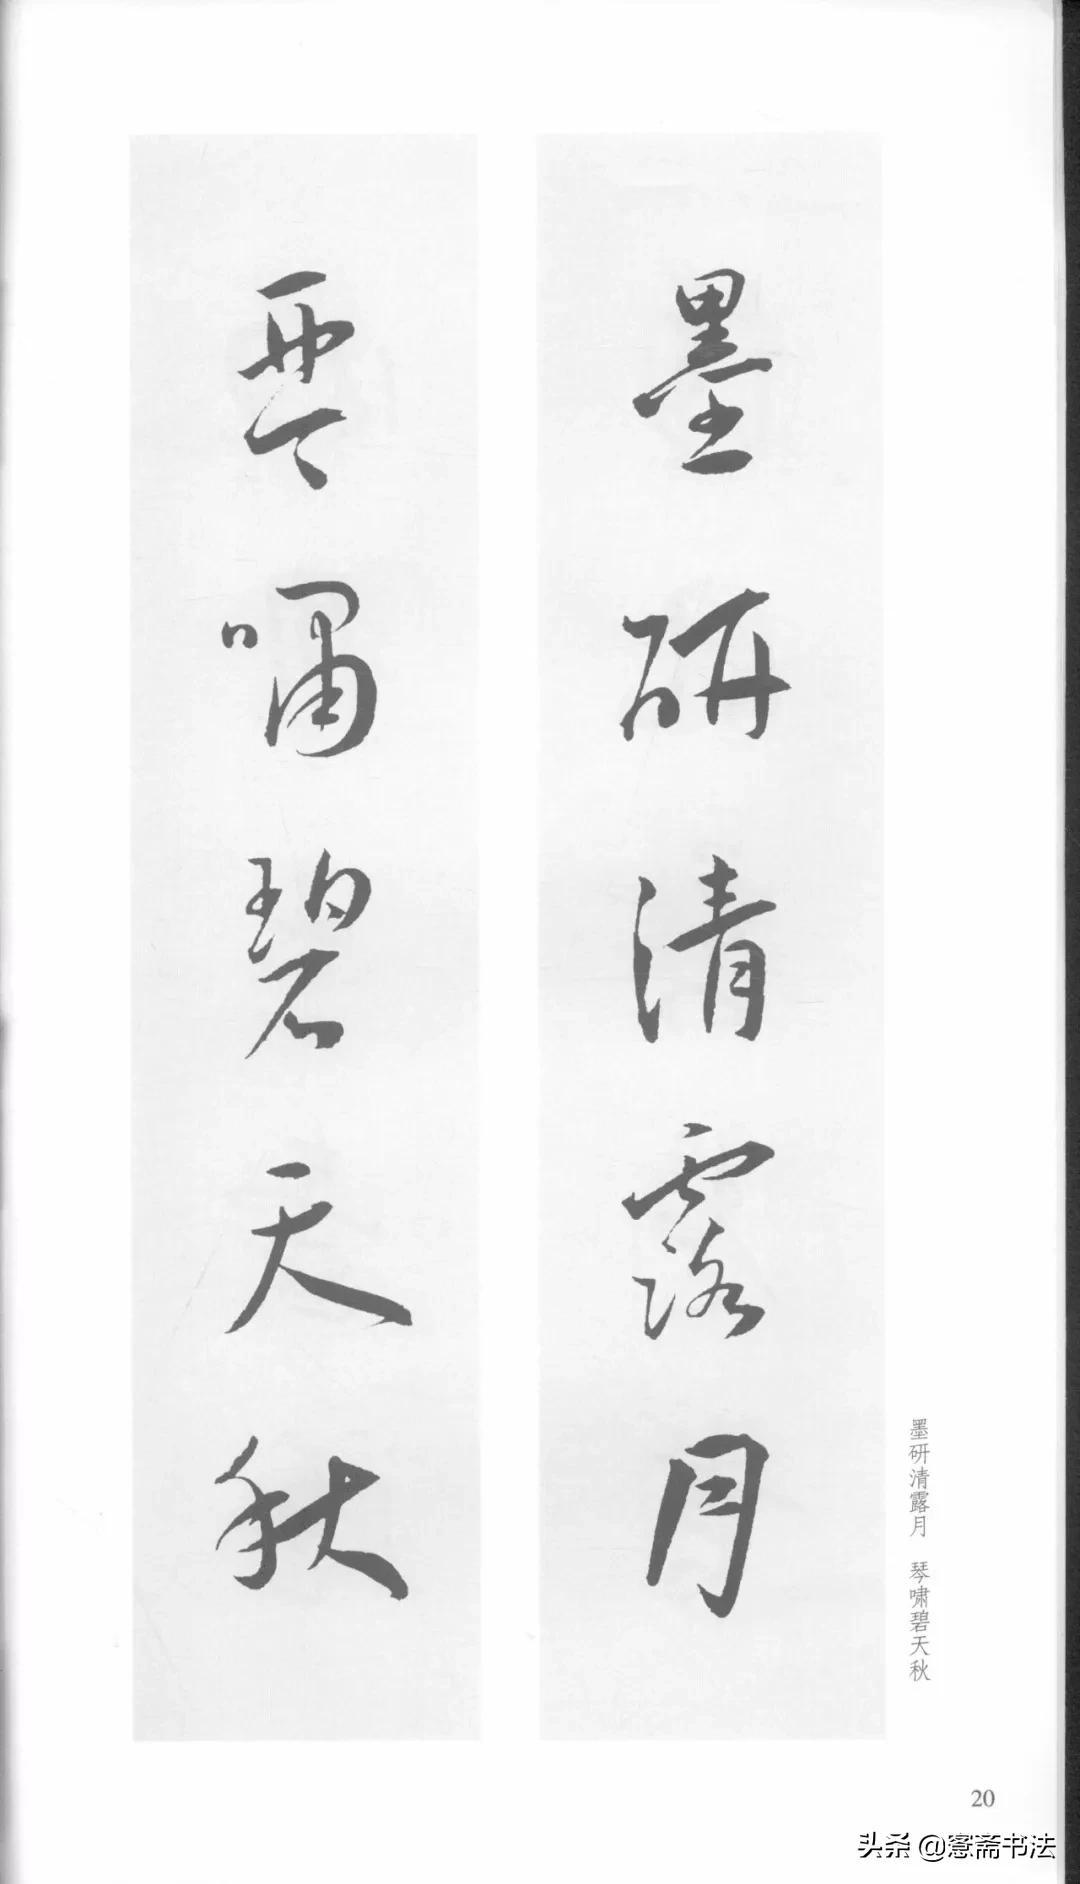 墨研清露月
琴啸碧天秋
墨研清露月 琴啸碧天秋
20
头条@窓斋书法